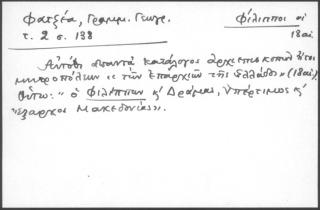 Φατζέα, Γραμμ. Γεωγρ.
Φίλιπποι οἱ
τ. 2 σ. 138
18 αἰ
Αὐτόθι ἀπαντᾷ κατάλογος ἀρχιεπισκοπῶν ἤτοι
μητροπόλεων «τῶν Ἐπαρχιῶν τῆς Ἑλλάδος» (18 αἰ).
Οὕτω: "ὁ Φιλίππων κ' Δράμας, Ὑπέρτιμος κ'
Ἔξαρχος Μακεδονίας".